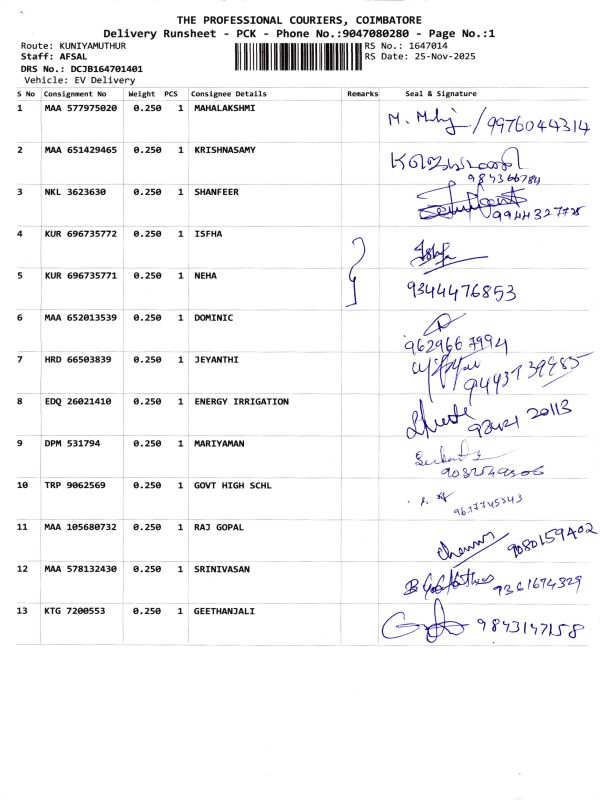 THE PROFESSIONAL COURIERS, COIMBATORE
Delivery Runsheet - PCK - Phone No.:9047080280 - Page No.:1
Route: KUNIYAMUTHUR RS No.: 1647014
Staff: AFSAL RS Date: 25-Nov-2025
DRS No.: DCJB164701401
Vehicle: EV Delivery
S No Consignment No Weight PCS Consignee Details Remarks Seal & Signature
1 MAA 577975020 0.250 1 MAHALAKSHMI / 9976044314
2 MAA 651429465 0.250 1 KRISHNASAMY
984366784
3 NKL 3623630 0.250 1 SHANFEER
9944327725
4 KUR 696735772 0.250 1 ISFHA
5 KUR 696735771 0.250 1 NEHA 9344476853
6 MAA 652013539 0.250 1 DOMINIC
9629667994
7 HRD 66503839 0.250 1 JEYANTHI
9443739985
8 EDQ 26021410 0.250 1 ENERGY IRRIGATION
9 DPM 531794 0.250 1 MARIYAMAN
10 TRP 9062569 0.250 1 GOVT HIGH SCHL
9677745543
11 MAA 105680732 0.250 1 RAJ GOPAL
9080159402
12 MAA 578132430 0.250 1 SRINIVASAN
9361674329
13 KTG 7200553 0.250 1 GEETHANJALI
9843147158